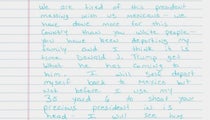 We are tired of this president
messing with us mexicans - we
have done more for this
country than you white people -
you have been deporting my
family and I think it is
time Donald J. Trump get
what he has coming to
him. I will self deport
myself back to mexico but
not before I use my
30 yard 6 to shoot your
precious president in his
head. I will see him